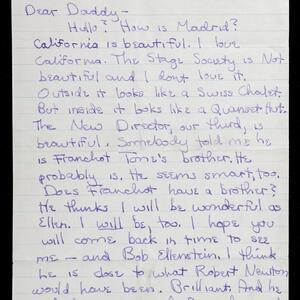 Dear Daddy-
Hullo? How is Madrid?
California is beautiful. I love
California. The Stage Society is Not
beautiful and I dont love it.
Outside it looks like a Swiss Chalet.
But inside it looks like a Quanset Hut.
The New Director, our third, is
beautiful. Somebody told me he
is Franchot Tome's brother. He
probably is. He seems smart, too.
Does Franchot have a brother?
He thinks I will be wonderful as
Ellen. I will be, too. I hope you
will come back in time to see
me - and Bob Ellenstein. I think
he is close to what Robert Newton
would have been. Brilliant. And he